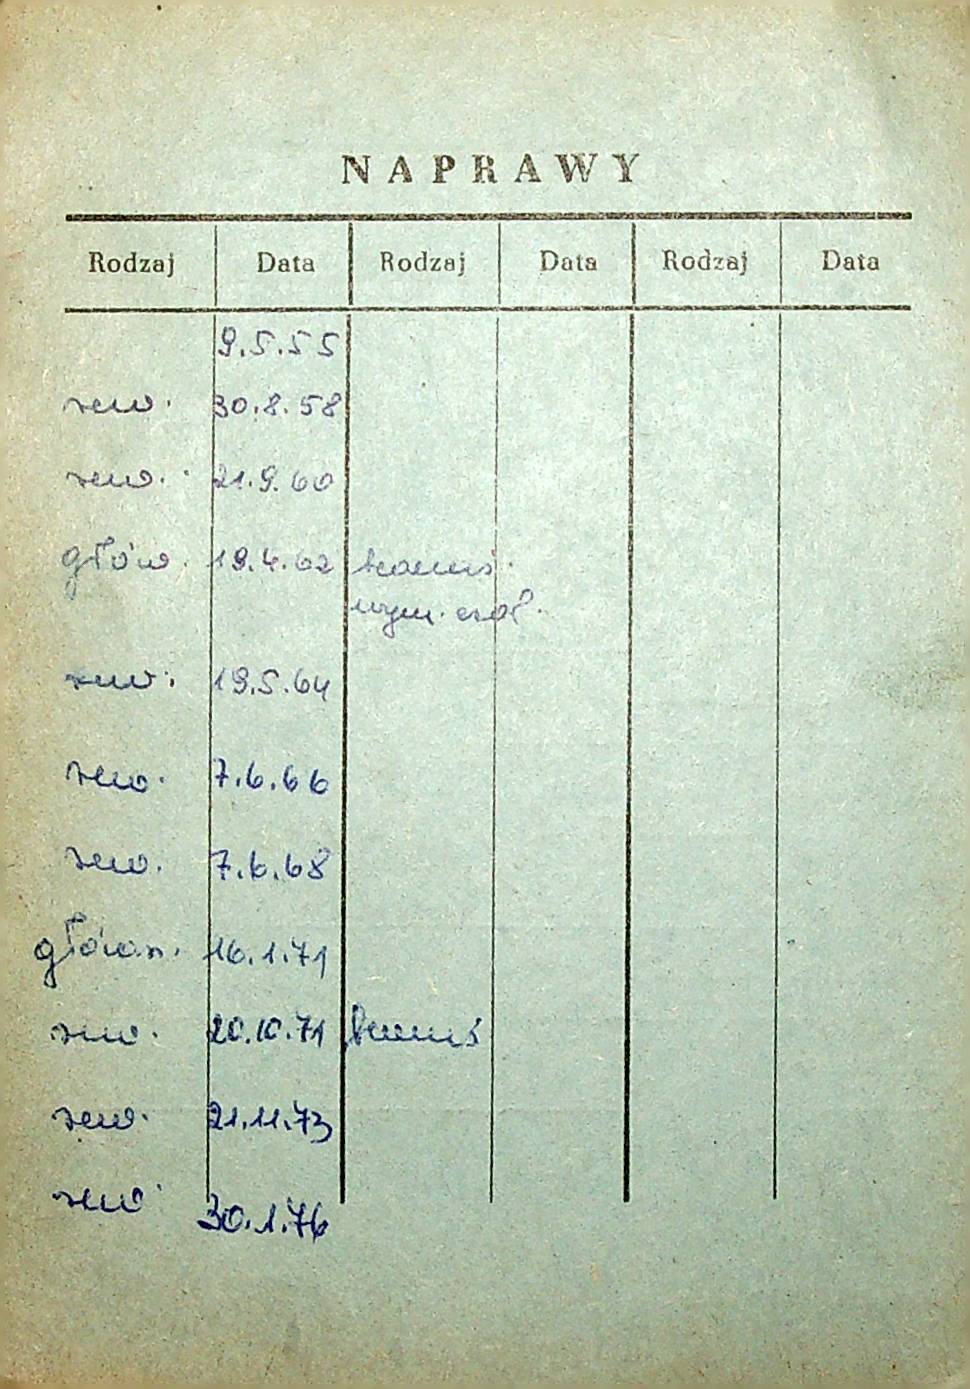 NAPRAWY
Rodzaj Data Rodzaj Data Rodzaj Data
9.5.55
rew. 30.8.58
rew. 21.9.60
głów. 19.4.62
wym.
rew. 19.5.64
rew. 7.6.66
rew. 7.6.68
główn. 16.1.71
rew. 20.10.71
rew. 21.11.73
rew 30.1.76